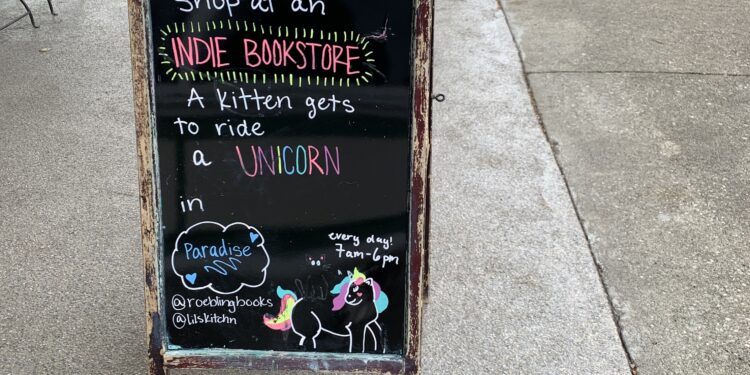 Shop at an
INDIE BOOKSTORE
A kitten gets
to ride
a UNICORN
in
Paradise
every day!
7am-6pm
@roeblingbooks
@lilskitchn